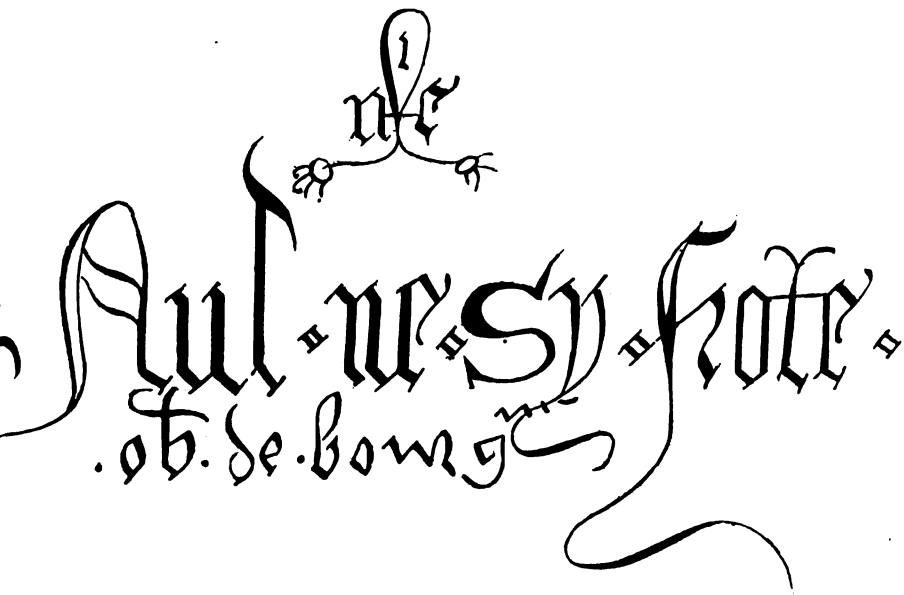 Nul · ne · sy · frote ·
. ob . de . bourgne